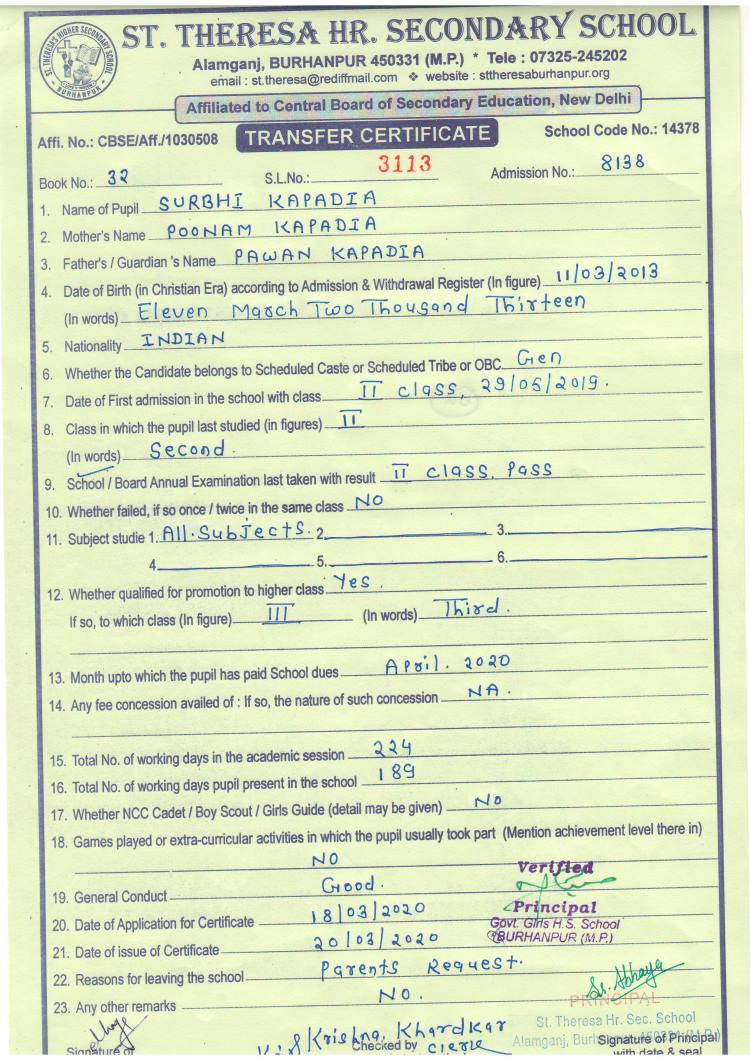 ST. THERESA HR. SECONDARY SCHOOL
Alamganj, BURHANPUR 450331 (M.P.) * Tele : 07325-245202
email : st.theresa@rediffmail.com ❖ website : sttheresaburhanpur.org
Affiliated to Central Board of Secondary Education, New Delhi
Affi. No.: CBSE/Aff./1030508 TRANSFER CERTIFICATE School Code No.: 14378
Book No.: 32 S.L.No.: 3113 Admission No.: 8138
1. Name of Pupil SURBHI KAPADIA
2. Mother's Name POONAM KAPADIA
3. Father's / Guardian 's Name PAWAN KAPADIA
4. Date of Birth (in Christian Era) according to Admission & Withdrawal Register (In figure) 11/03/2013
(In words) Eleven March Two Thousand Thirteen
5. Nationality INDIAN
6. Whether the Candidate belongs to Scheduled Caste or Scheduled Tribe or OBC Gen
7. Date of First admission in the school with class II class, 29/05/2019.
8. Class in which the pupil last studied (in figures) II
(In words) Second.
9. School / Board Annual Examination last taken with result II class. Pass
10. Whether failed, if so once / twice in the same class NO
11. Subject studie 1. All. Subjects. 2. 3.
4. 5. 6.
12. Whether qualified for promotion to higher class Yes.
If so, to which class (In figure) III (In words) Third.
13. Month upto which the pupil has paid School dues April. 2020
14. Any fee concession availed of : If so, the nature of such concession NA.
15. Total No. of working days in the academic session 224
16. Total No. of working days pupil present in the school 189
17. Whether NCC Cadet / Boy Scout / Girls Guide (detail may be given) No
18. Games played or extra-curricular activities in which the pupil usually took part (Mention achievement level there in)
NO
Verified
19. General Conduct Good.
Principal
20. Date of Application for Certificate 18/03/2020
Govt. Girls H.S. School
21. Date of issue of Certificate 20/03/2020
BURHANPUR (M.P.)
22. Reasons for leaving the school Parents Request.
23. Any other remarks NO.
Sr. Abhaya
PRINCIPAL
St. Theresa Hr. Sec. School
Krishna Khardkar
Alamganj, Burhanpur 450331 (M.P.)
Signature of Checked by Clerk Signature of Principal
with date & seal